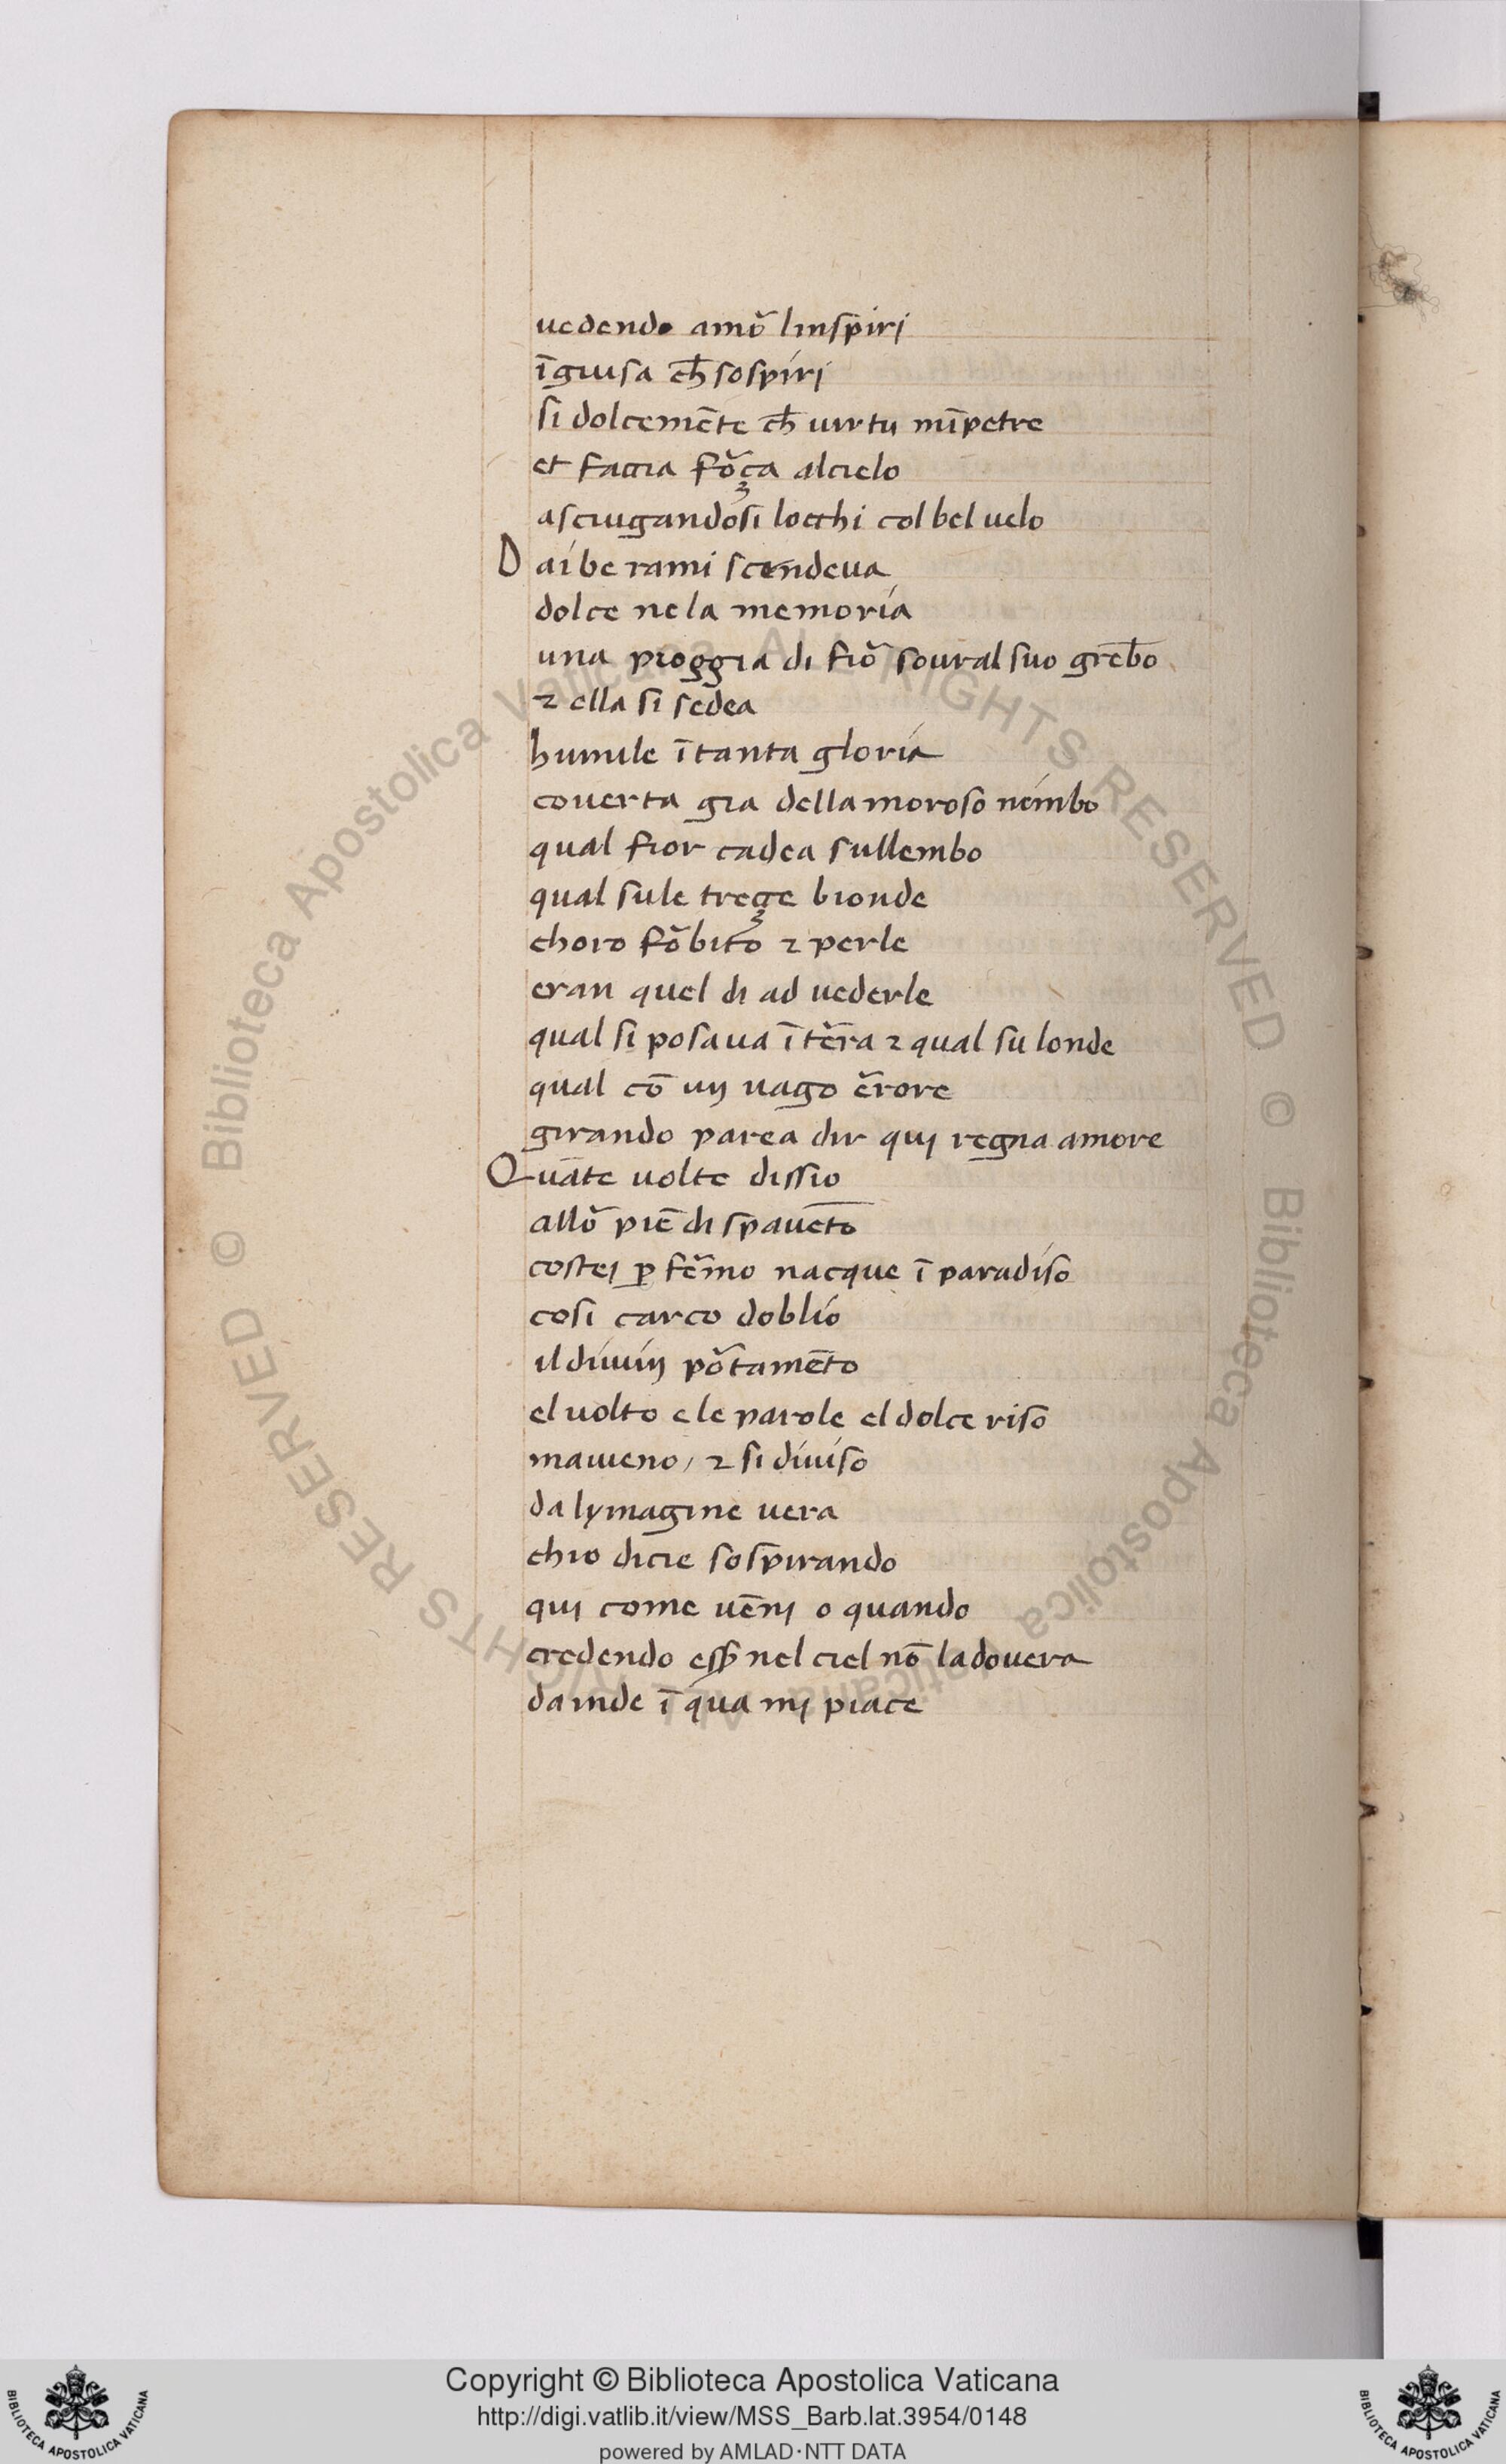 uedendo amo᷑ linspiri
ī guisa ch̄ sospiri
si dolcemēte ch̄ uirtu mīpetre
et faccia fo᷑ça alcielo
asciugandosi locchi col bel uelo
Dai be rami scendeua
dolce ne la memoria
una pioggia di fio᷑ soural suo grēbo
⁊ ella si sedea
humile ī tanta gloria
couerta gia dellamoroso nembo
qual fior cadea sullembo
qual sule treçe bionde
choro fo᷑bito ⁊ perle
eran quel di ad uederle
qual si posaua ī te᷑ra ⁊ qual su londe
qual cō un uago e᷑rore
girando parea dir qui regna amore
Quāte uolte dissio
allo᷑ piē di spauēto
costei ꝑ fe᷑mo nacque ī paradiso
cosi carco doblio
il diuin po᷑tamēto
el uolto e le parole el dolce riso
maueno, ⁊ si diuiso
da lymagine uera
chio dicie sospirando
qui come uēni o quando
credendo esẜ nel ciel nō la douera
da inde ī qua mi piace
© Biblioteca Apostolica Vaticana ALL RIGHTS RESERVED © Biblioteca Apostolica Vaticana ALL RIGHTS RESERVED
Copyright © Biblioteca Apostolica Vaticana
http://digi.vatlib.it/view/MSS_Barb.lat.3954/0148
powered by AMLAD·NTT DATA
BIBLIOTECA APOSTOLICA VATICANA
BIBLIOTECA APOSTOLICA VATICANA